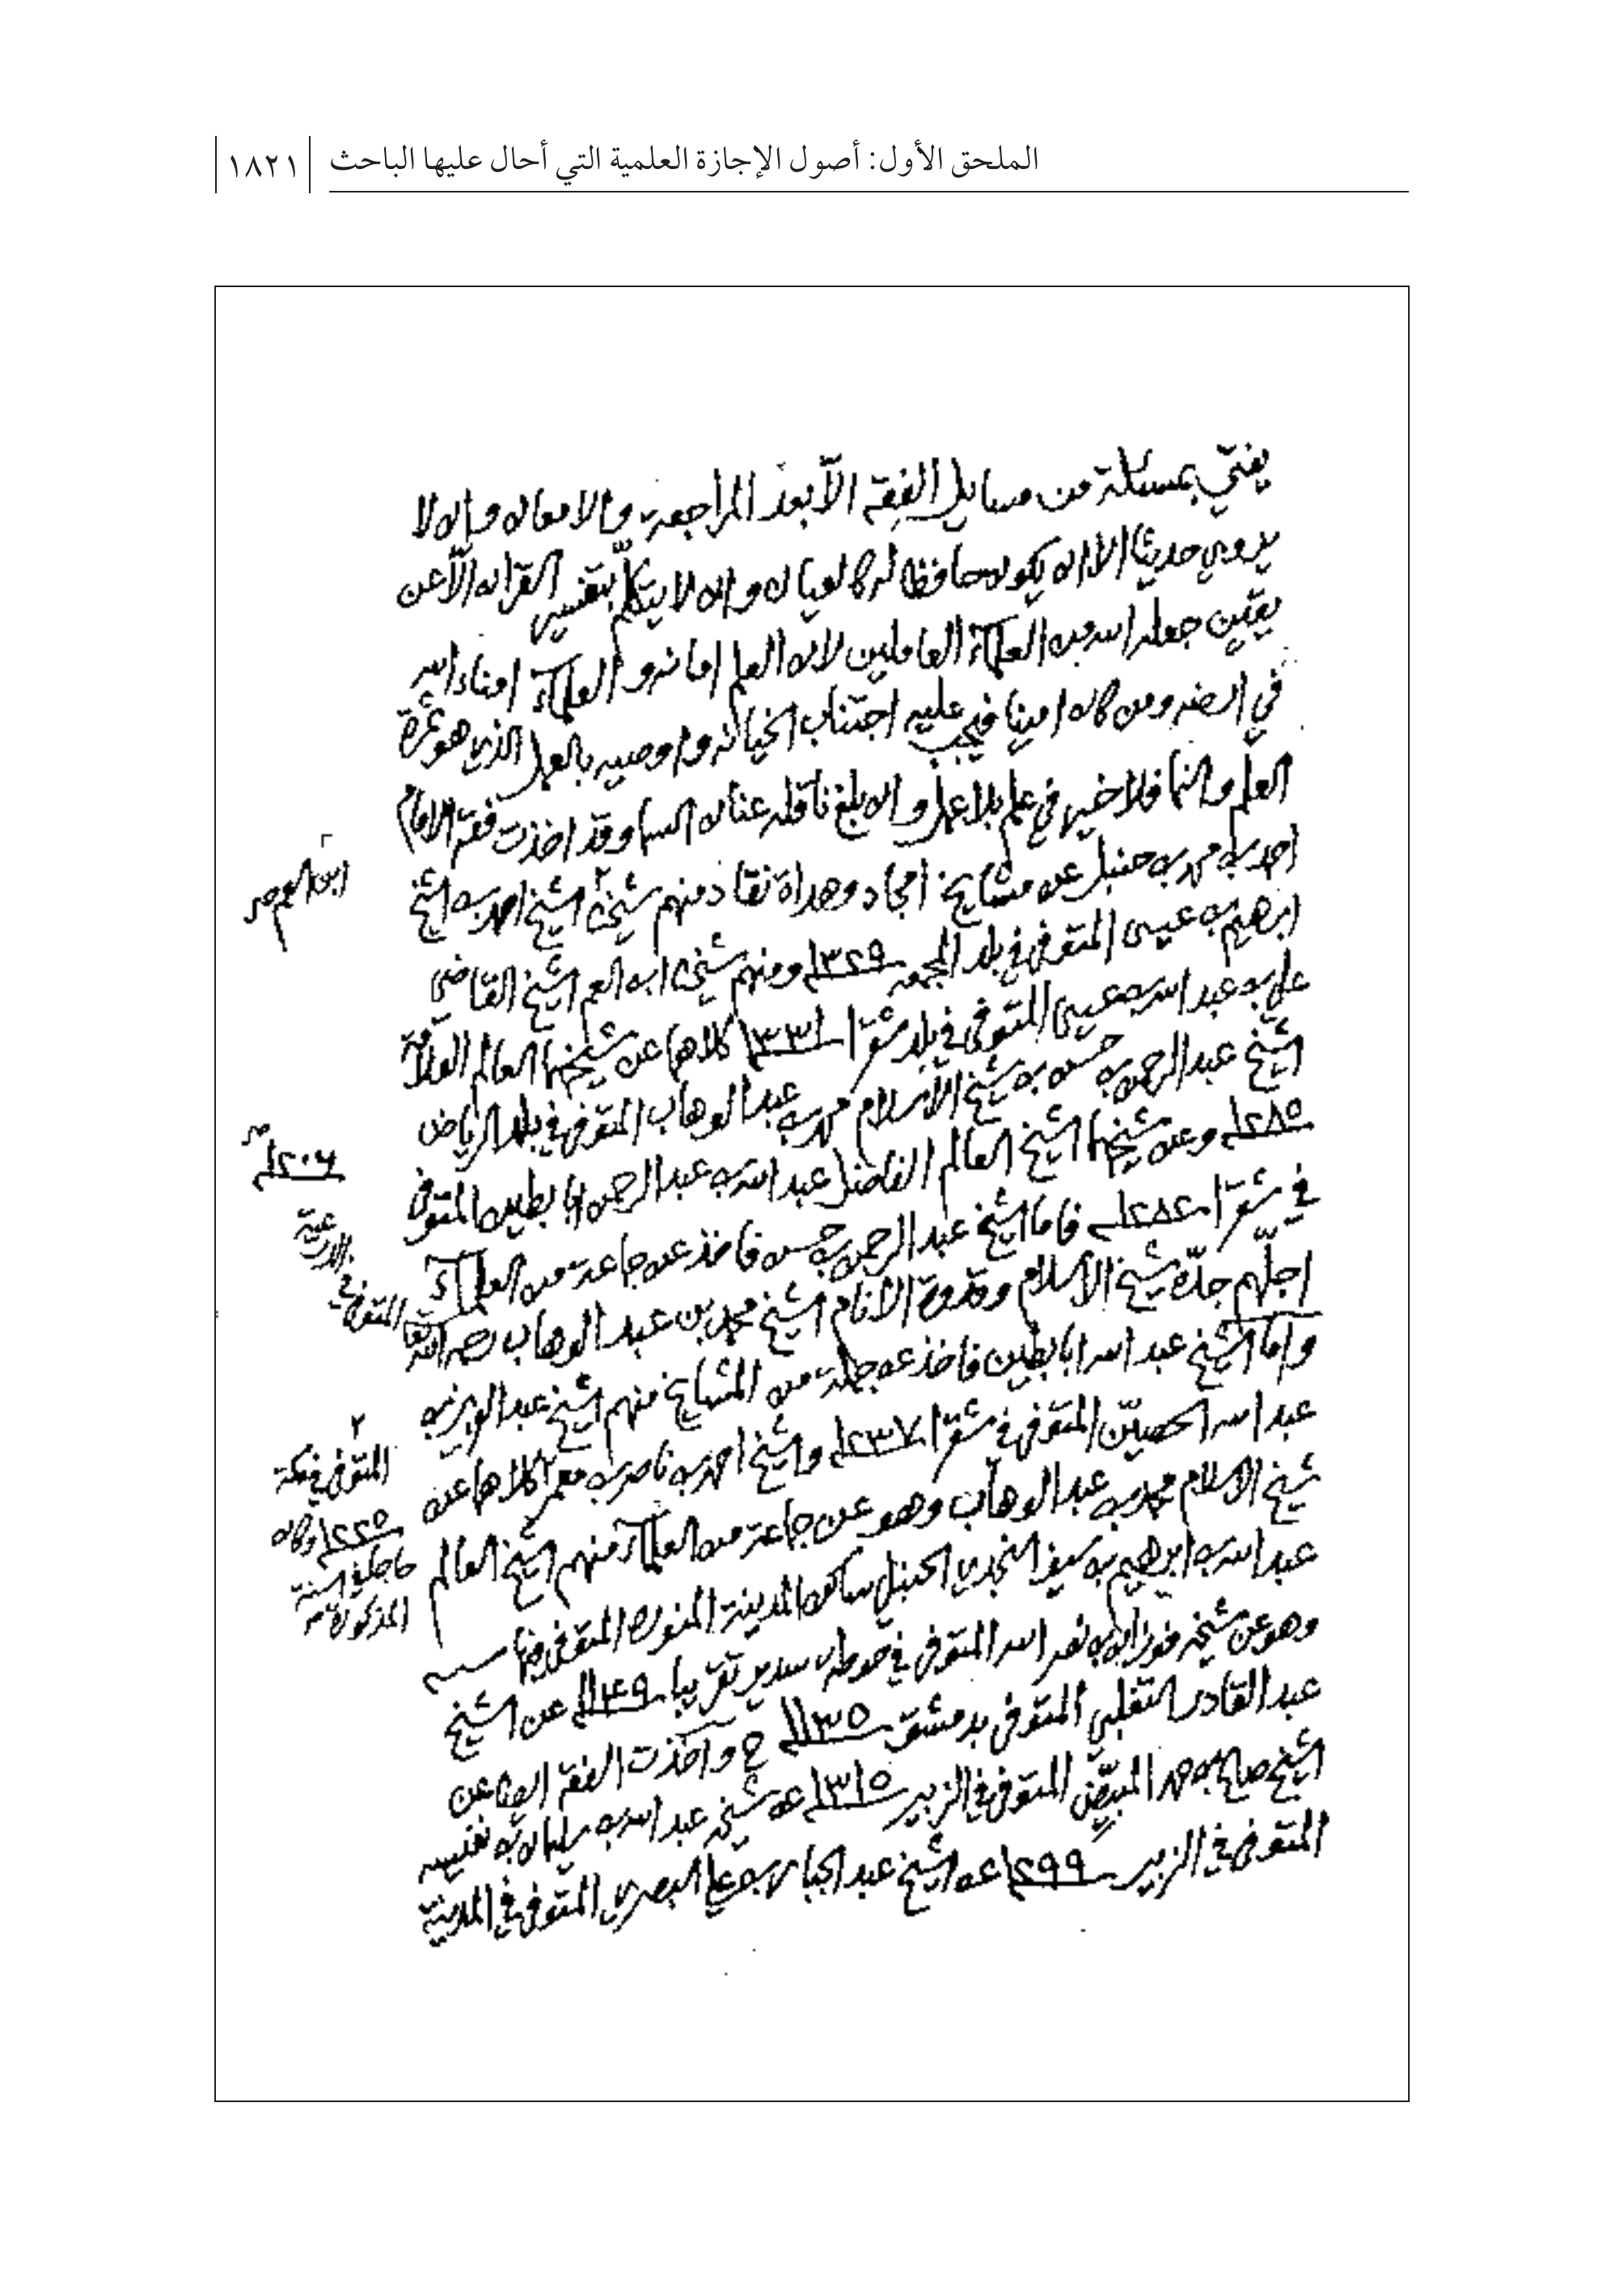 الملحق الأول: أصول الإجازة العلمية التي أحال عليها الباحث ١٨٢١
يفتي بمسئلة من مسايل الفقه الّا بعد المراجعة والامعان وان لا
يروي حديثا الا ان يكون حافظا له كالعيان وان لا يتكلّم بتفسير القران الّا عن
يقين جعله الله من العلمآء العاملين لان العلم امانه والعلمآء امناء الله
في ارضه ومن كان امينا فيجب عليه اجتناب الخيانه واوصيه بالعمل الذي هو ثمرة
العلم والنما فلا خير في علم بلا عمل وان بلغ ناقله عنان السما وقد اخذت فقه الامام
احمد بن محمد بن حنبل عن مشايخ امجاد وهداة نقاد منهم شيخي الشيخ احمد بن الشيخ
ابرهيم بن عيسى المتوفى في بلد المجمعه ١٣٢٩ ومنهم شيخي ابن العم الشيخ القاضي
علي بن عبد الله بن عيسى المتوفى في بلد شقرا ١٣٣١ كلاهما عن شيخهما العالم العلامة
الشيخ عبد الرحمن بن حسن بن شيخ الاسلام محمد بن عبد الوهاب المتوفى في بلد الرياض
١٢٨٥ وعن شيخهما الشيخ العالم الفاضل عبد الله بن عبد الرحمن ابا بطين المتوفى
في شقرا ١٢٨٢ فاما الشيخ عبد الرحمن بن حسن فاخذ عن جماعة من العلمآء
اجلّهم جدّه شيخ الاسلام وقدوة الانام الشيخ محمد بن عبد الوهاب رحمه الله
واما الشيخ عبد الله ابا بطين فاخذ عن جملة من المشايخ منهم الشيخ عبد العزيز بن
عبد الله الحصيّن المتوفى في شقرا ١٢٣٧ والشيخ احمد بن ناصر بن معمر كلاهما عن
شيخ الاسلام محمد بن عبد الوهاب وهو عن جماعة من العلمآء منهم الشيخ العالم
عبد الله بن ابرهيم بن سيف النجدي الحنبلي ساكن المدينة المنوره المتوفى بها سنه
وهو عن شيخه فوزان بن نصر الله المتوفى في حوطة سدير تقريبا ١١٤٩ عن الشيخ
عبد القادر التغلبي المتوفى بدمشق ١١٣٥ ح واخذت الفقه ايضا عن
الشيخ صالح بن حمد المبيّض المتوفى في الزبير ١٣١٥ عن شيخه عبد الله بن سليمان بن نفيسه
المتوفى في الزبير ١٢٩٩ عن الشيخ عبد الجبار بن علي البصري المتوفى في المدينة
ابن العم صح
المتوفى في
الدرعية
١٢٠٦
٢
المتوفى في مكة
١٢٢٥ وكان
حاجا في السنة
المذكورة